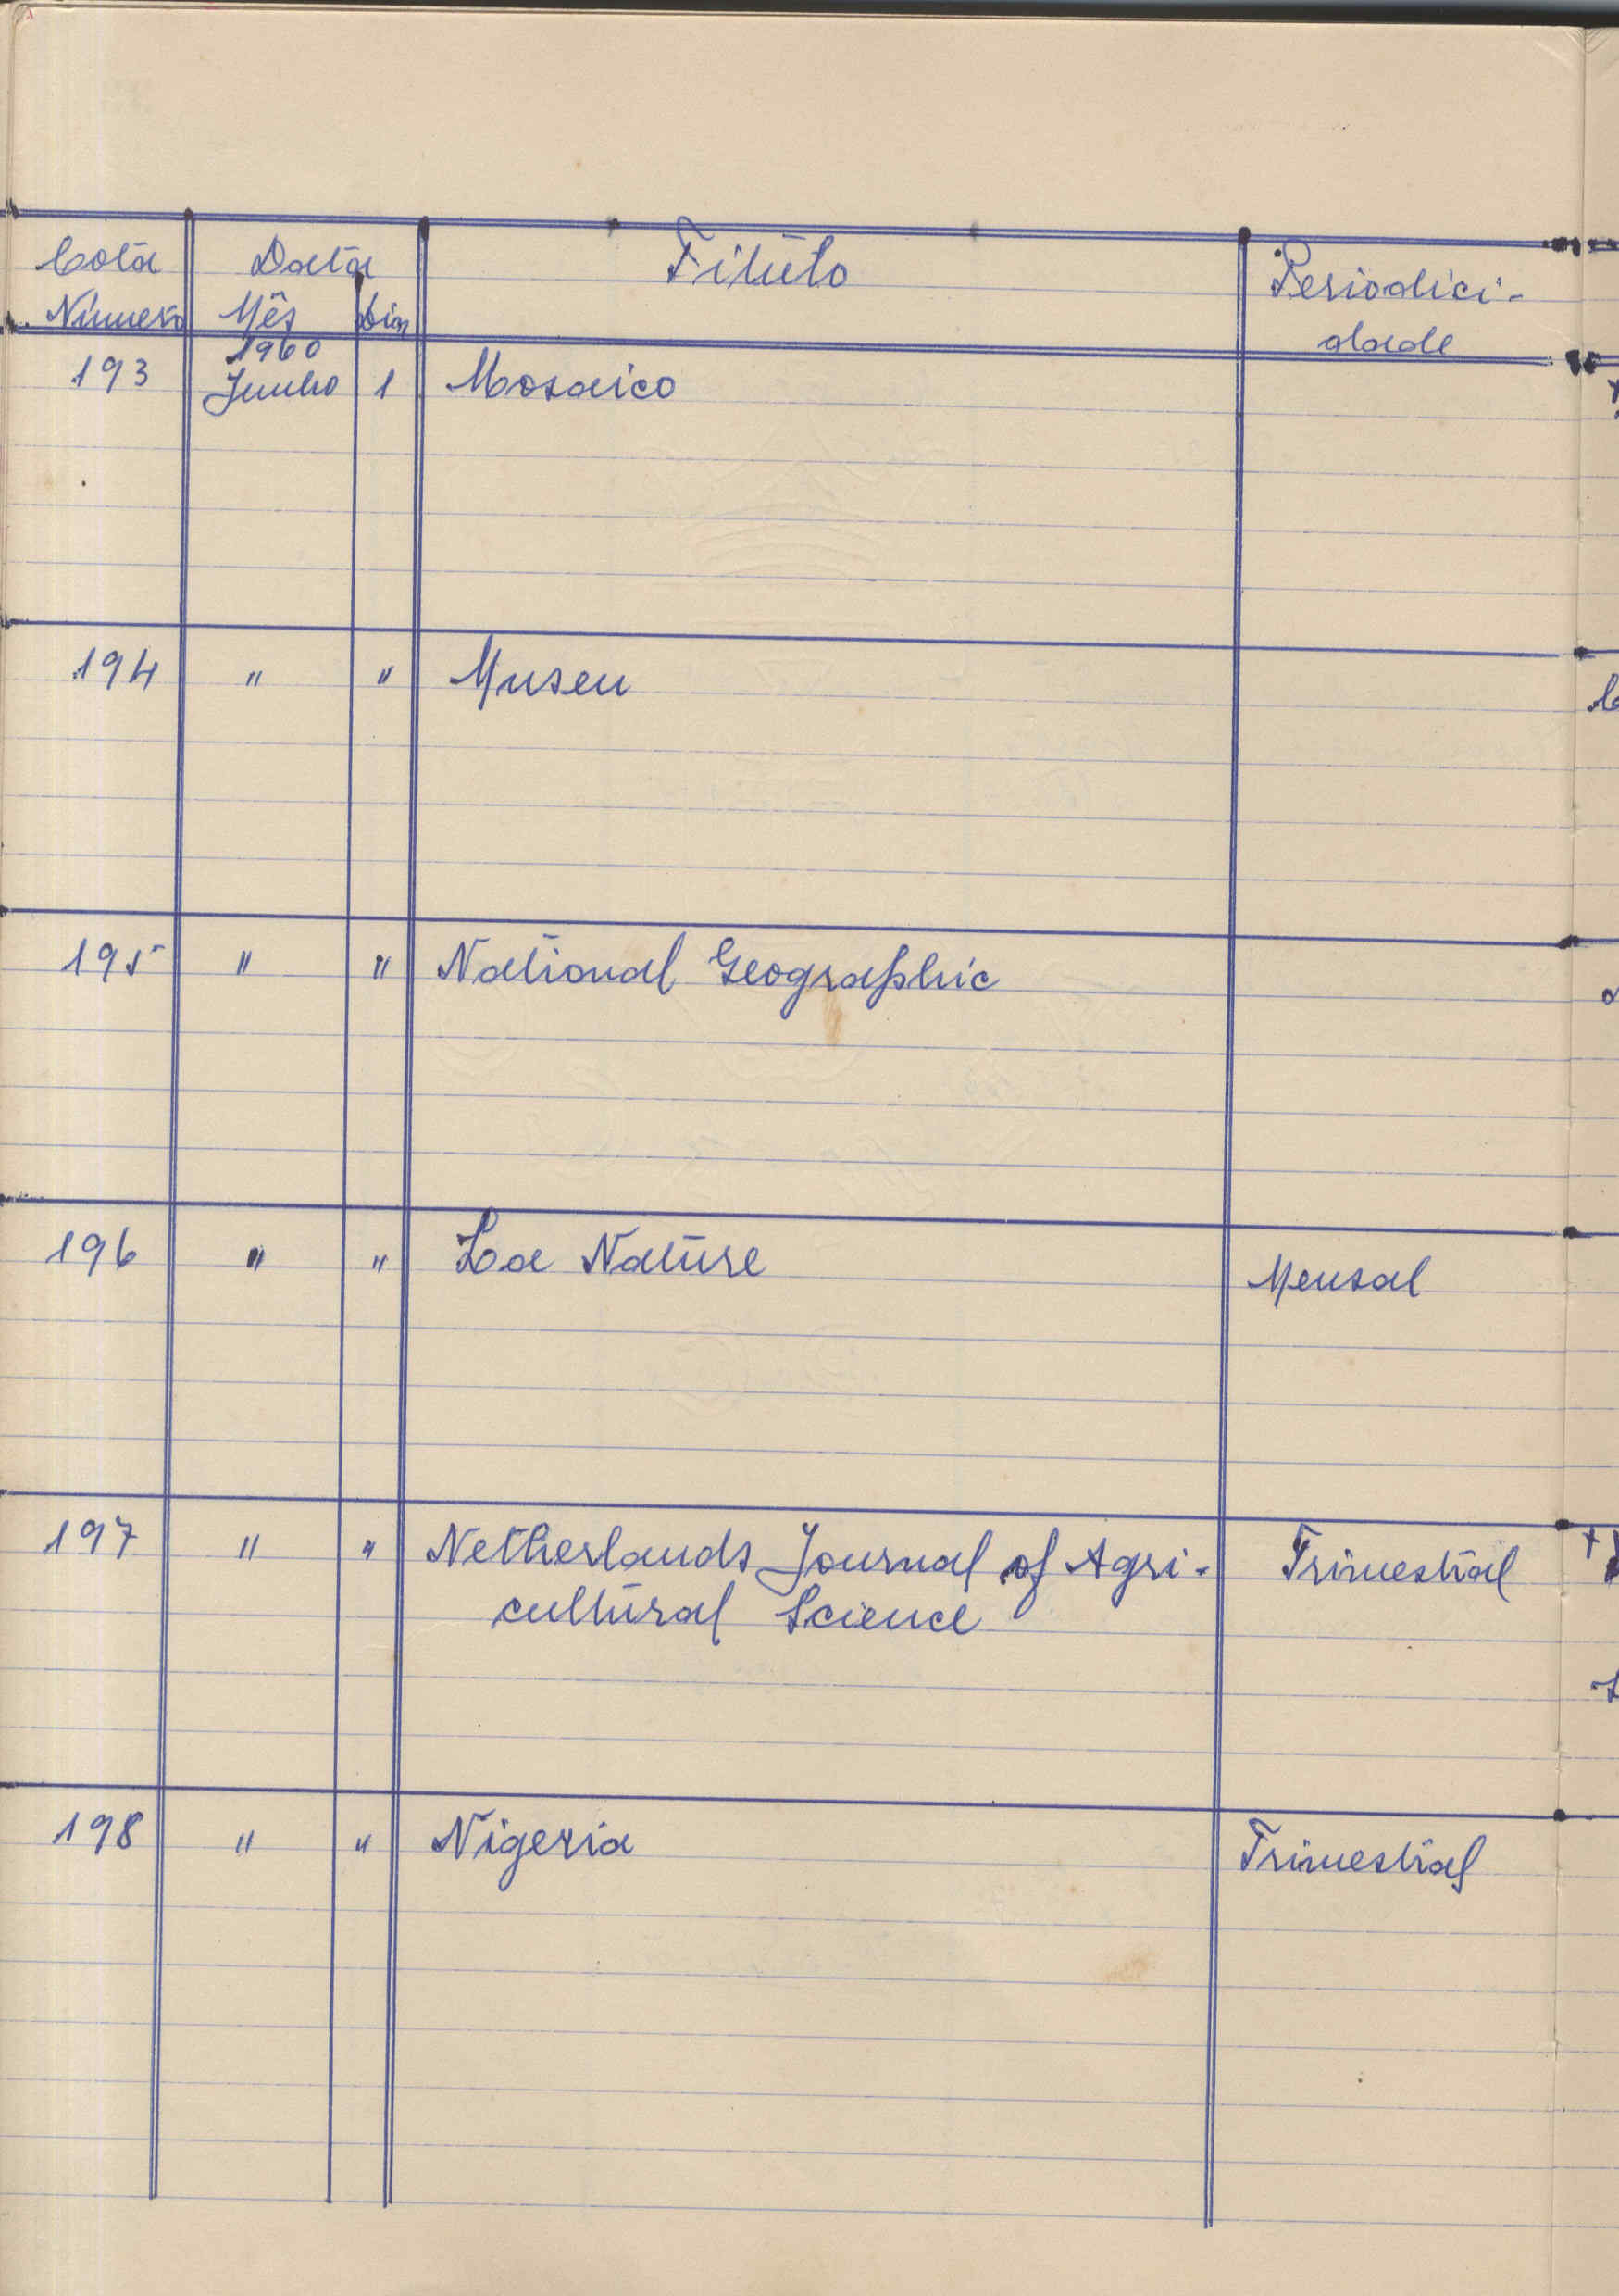 Cota Data Titulo Periodici-
Número Mês Dia dade
193 1960
Junho 1 Mosaico
194 " " Museu
195 " " National Geographic
196 " " La Nature Mensal
197 " " Netherlands Journal of Agri- Trimestral
cultural Science
198 " " Nigeria Trimestral